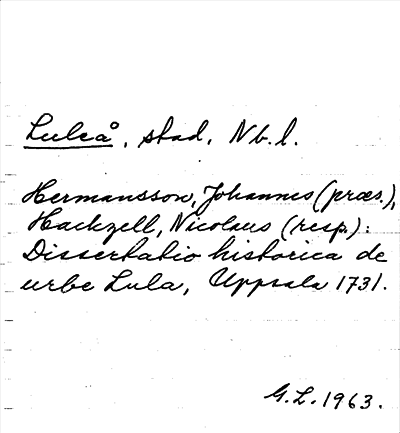 Luleå, stad, Nb.l.
Hermansson, Johannes (præs.),
Hackzell, Nicolaus (resp.):
Dissertatio historica de
urbe Lula, Uppsala 1731.
G.L. 1963.